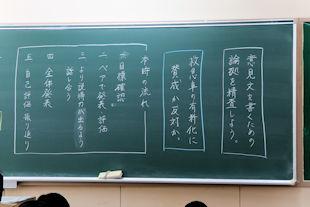 意見文を書くための
論拠を精査しよう。
救急車の有料化に
賛成か反対か。
本時の流れ
一 目標確認
二 ペアで発表 評価
三 より説得力が出るよう
話し合う
四 全体発表
五 自己評価 振り返り